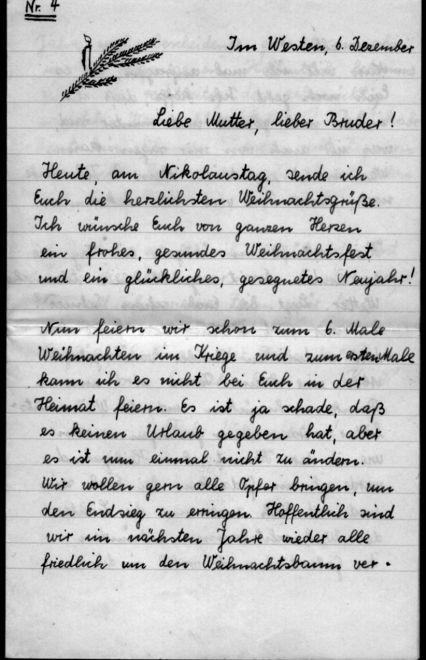 Nr. 4
Im Westen, 6. Dezember
Liebe Mutter, lieber Bruder!
Heute, am Nikolaustag, sende ich
Euch die herzlichsten Weihnachtsgrüße.
Ich wünsche Euch von ganzen Herzen
ein frohes, gesundes Weihnachtsfest
und ein glückliches, gesegnetes Neujahr!
Nun feiern wir schon zum 6. Male
Weihnachten im Kriege und zum ersten Male
kann ich es nicht bei Euch in der
Heimat feiern. Es ist ja schade, daß
es keinen Urlaub gegeben hat, aber
es ist nun einmal nicht zu ändern.
Wir wollen gern alle Opfer bringen, um
den Endsieg zu erringen. Hoffentlich sind
wir im nächsten Jahre wieder alle
friedlich um den Weihnachtsbaum ver-